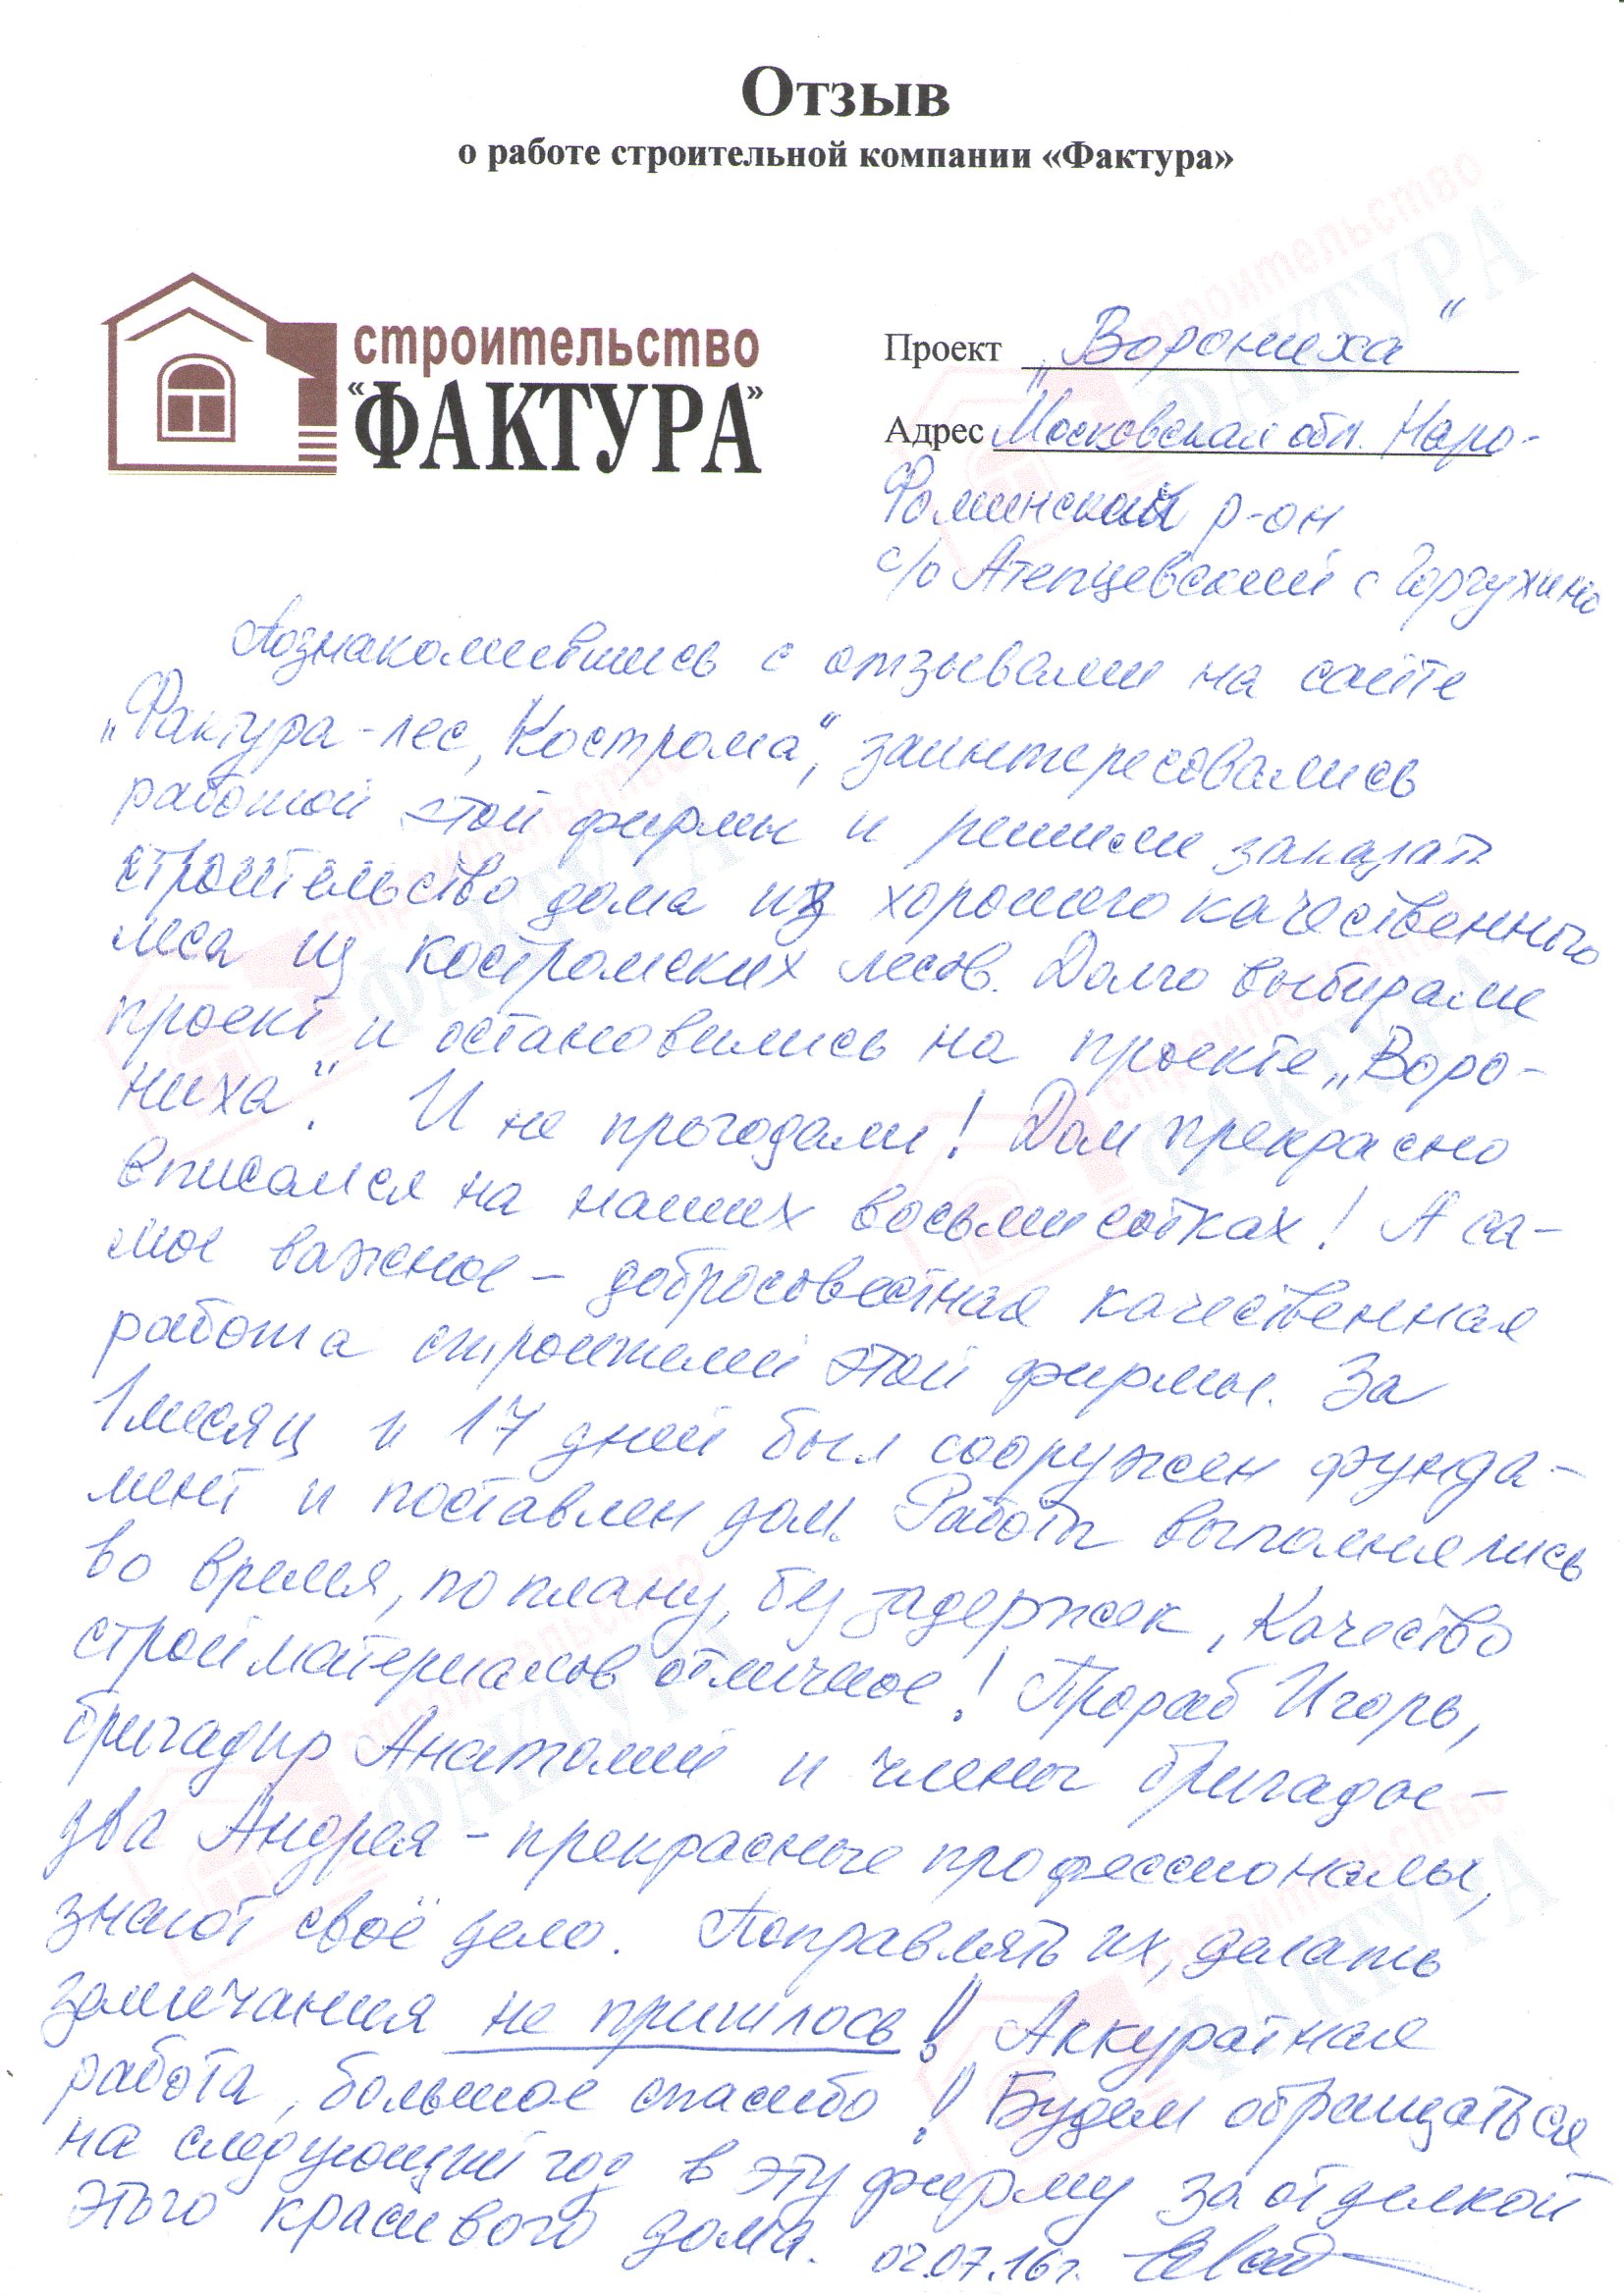 Отзыв
о работе строительной компании «Фактура»
строительство
"ФАКТУРА"
Проект „Ворониха"
Адрес Московская обл. Наро-
Фоминский р-он
с/о Атепцевский с Горчухино
Познакомившись с отзывами на сайте
„Фактура-лес, Кострома", заинтересовались
работой этой фирмы и решили заказать
строительство дома из хорошего качественного
леса из костромских лесов. Долго выбирали
проект и остановились на проекте „Воро-
ниха". И не прогадали! Дом прекрасно
вписался на наших восьми сотках! А са-
мое важное - добросовестная качественная
работа строителей этой фирмы. За
1 месяц и 17 дней был сооружен фунда-
мент и поставлен дом. Работы выполнялись
во время, по плану, без задержек, Качество
стройматериалов отличное! Прораб Игорь,
бригадир Анатолий и члены бригады -
два Андрея - прекрасные профессионалы,
знают своё дело. Поправлять их, делать
замечания не пришлось! Аккуратная
работа, большое спасибо! Будем обращаться
на следующий год в эту фирму за отделкой
этого красивого дома. 02.07.16г.